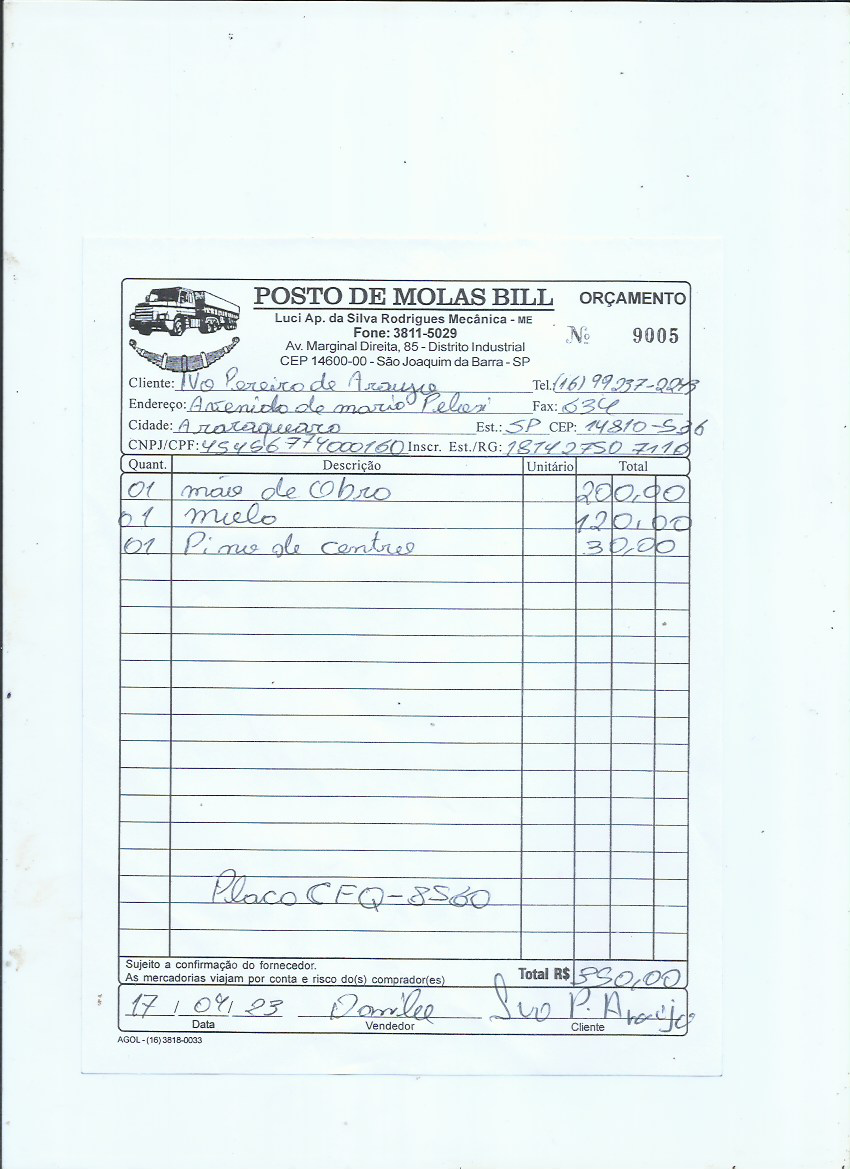 POSTO DE MOLAS BILL
ORÇAMENTO
Luci Ap. da Silva Rodrigues Mecânica - ME
Fone: 3811-5029
Nº 9005
Av. Marginal Direita, 85 - Distrito Industrial
CEP 14600-00 - São Joaquim da Barra - SP
Cliente: Ivo Pereira de Araujo Tel. (16) 99237-2243
Endereço: Avenida de mario Fax: 634
Cidade: Araraquara Est.: SP CEP: 14810-536
CNPJ/CPF: 45456774000160 Inscr. Est./RG: 181427507110
Quant. Descrição Unitário Total
01 mão de Obra 200,00
01 mola 120,00
01 Pino de centro 30,00
Placa CFQ-8560
Sujeito a confirmação do fornecedor.
As mercadorias viajam por conta e risco do(s) comprador(es)
Total R$ 350,00
17 / 04 / 23 Ivo P. Araújo
Data Vendedor Cliente
AGOL - (16) 3818-0033